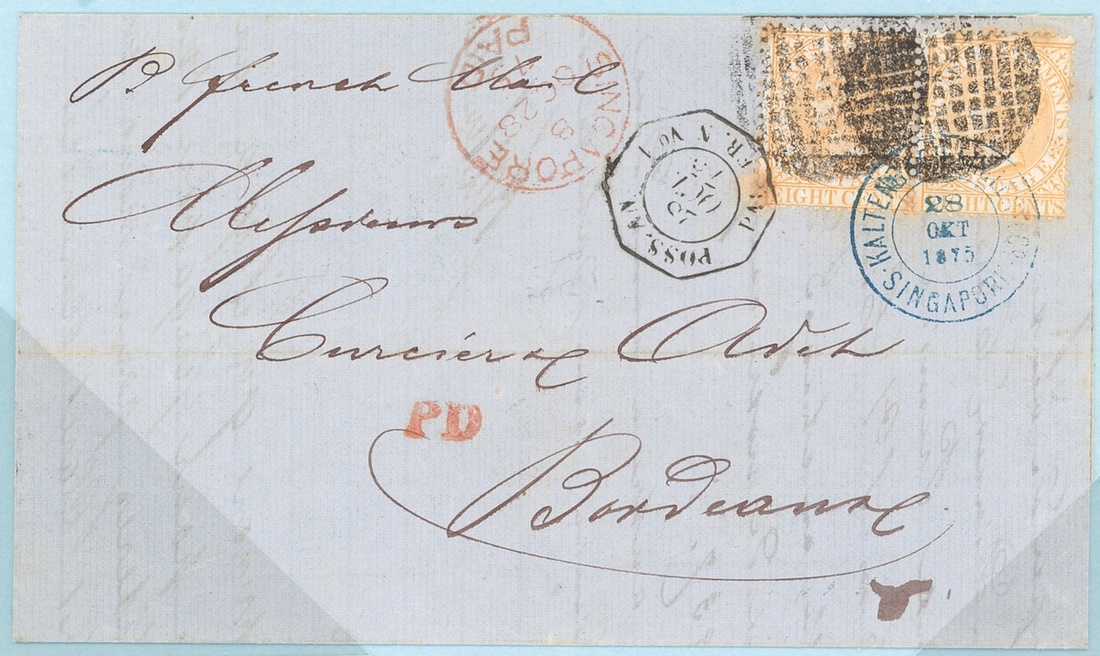 P. french Mail
Messieurs
Curcier & Adet
Bordeaux
PD
SINGAPORE
PAID
28
POSS. AN
PAQ. FR. N No 1
28
OCT
75
EIGHT CENTS
EIGHT CENTS
KALTENB
SINGAPORE
28
OKT
1875